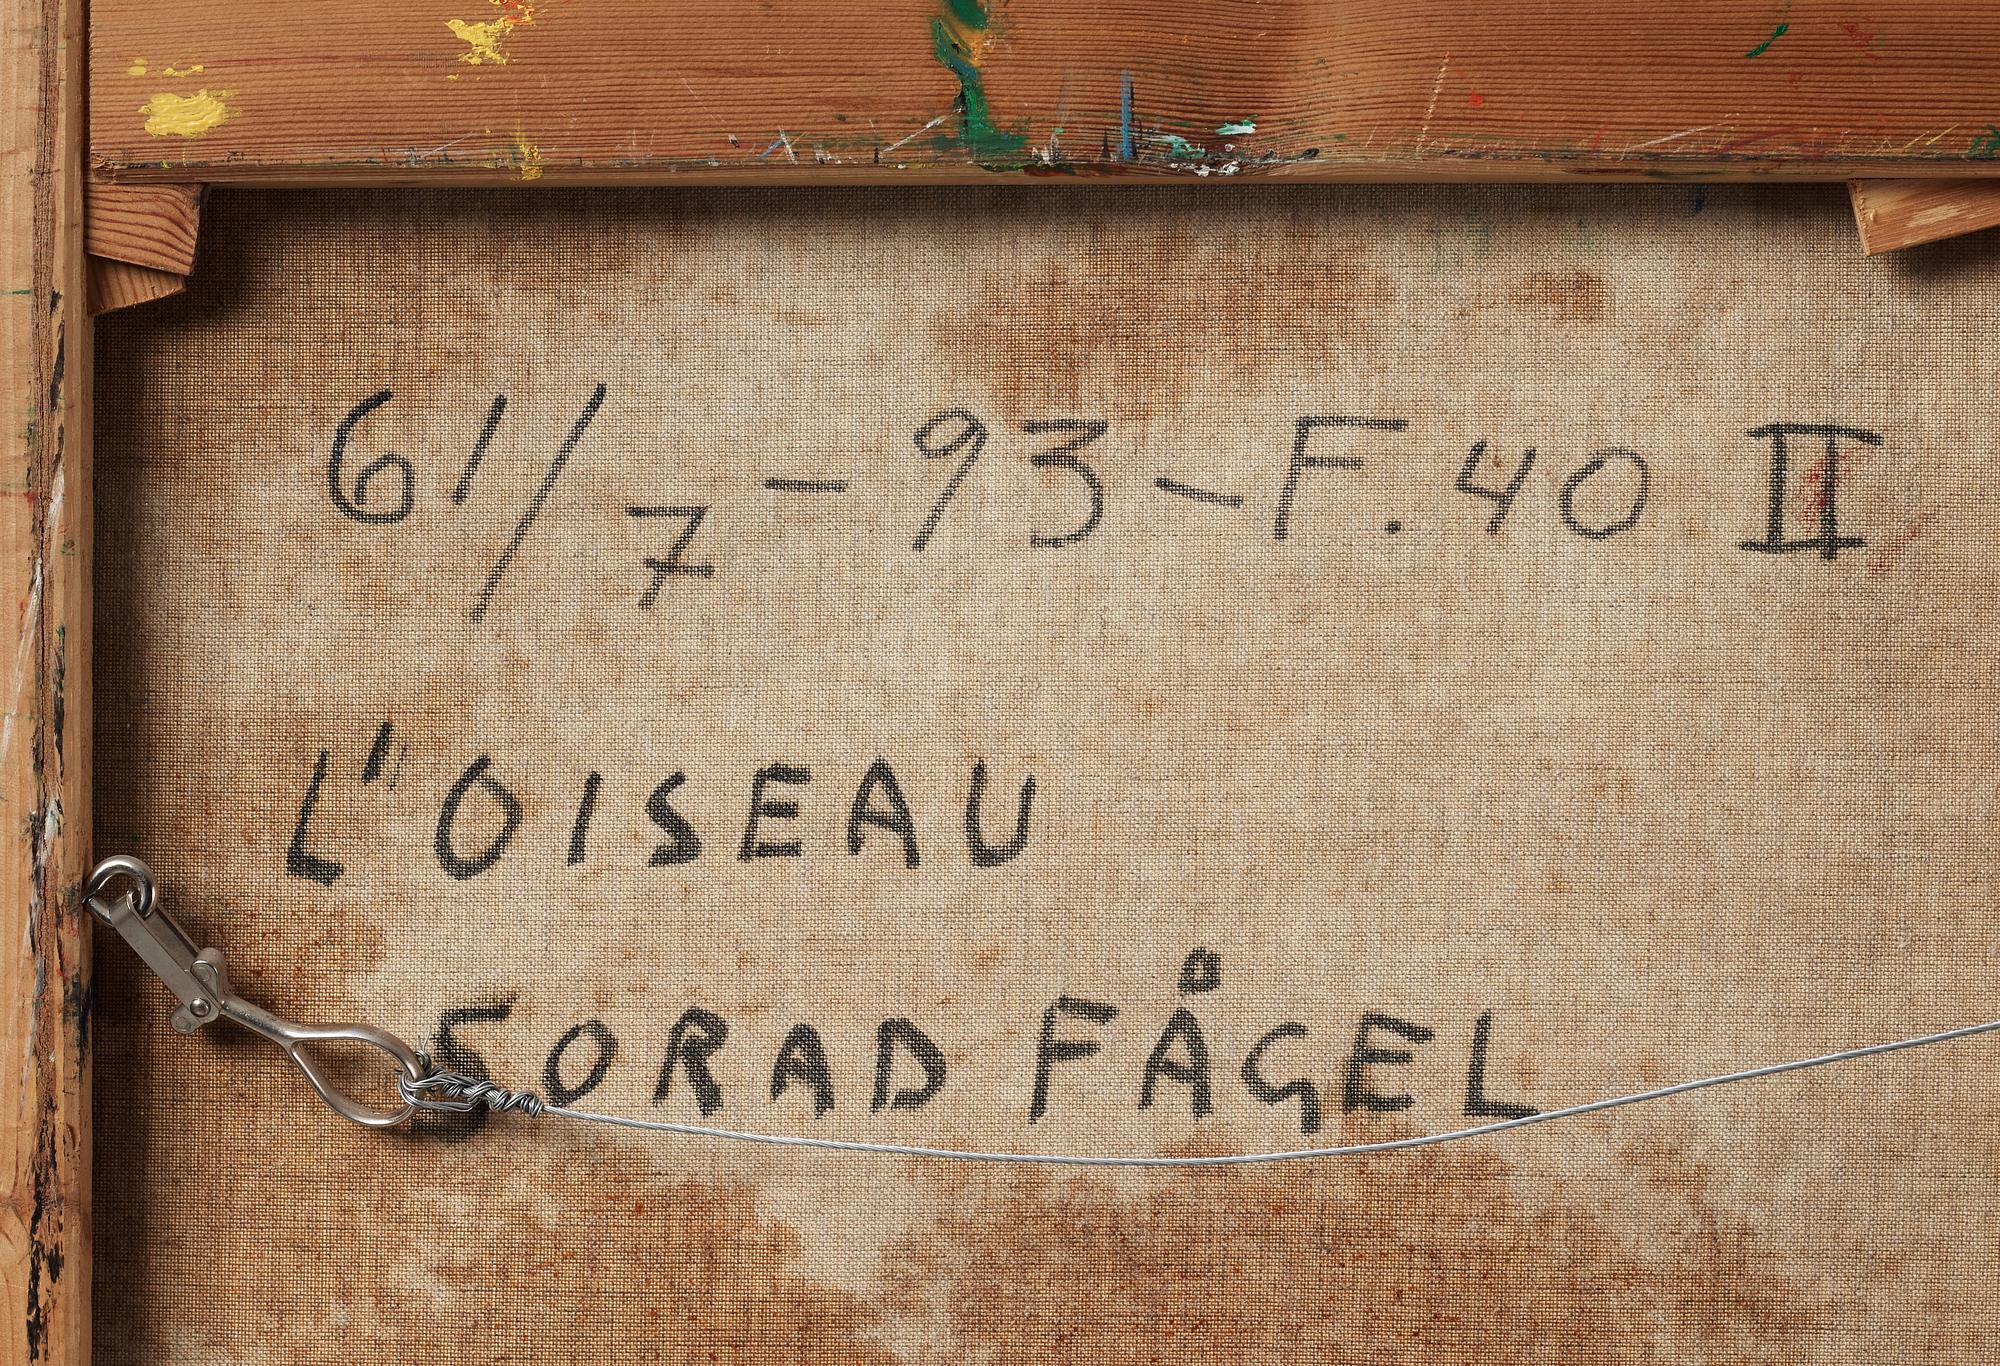 61/7 - 93 - F. 40 II
L'OISEAU
SORAD FÅGEL